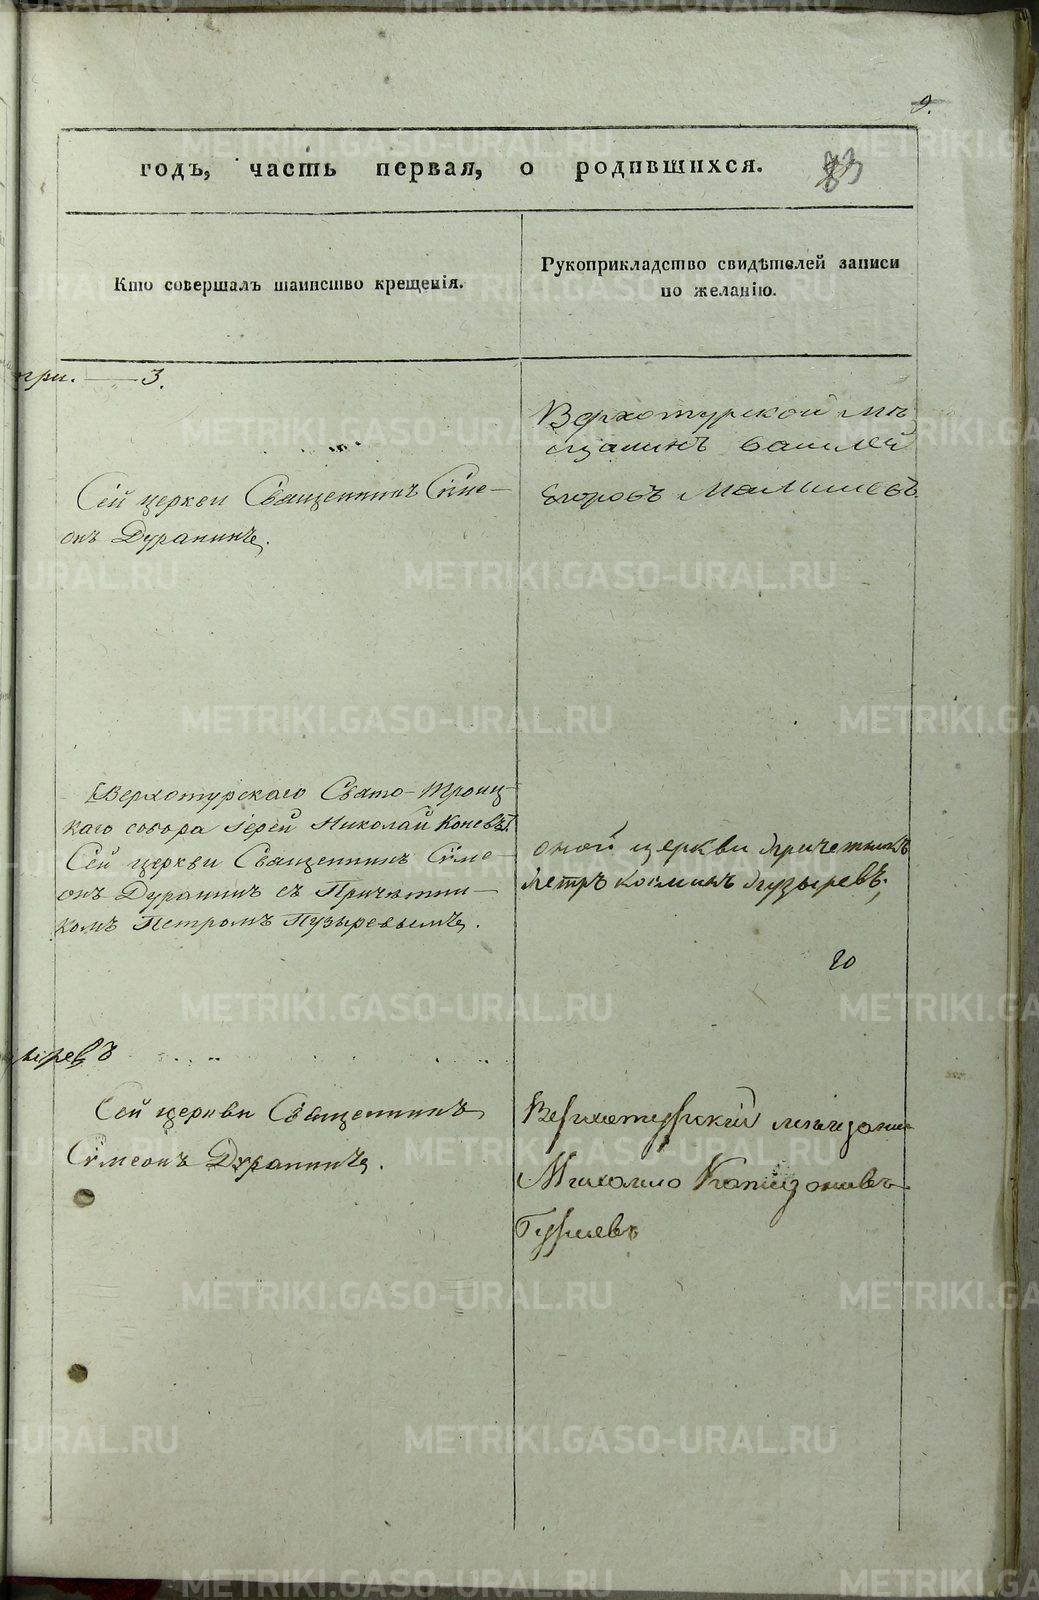 9.
годъ, часть первая, о родившихся. 83
Кто совершалъ таинство крещенія.
Рукоприкладство свидѣтелей записи
по желанію.
три. — 3.
Сей церкви Священникъ Симе-
онъ Дуранинъ.
Верхотурской мѣ
щанинъ василей
Егоровъ Малышевъ
Верхотурскаго Свято-Троиц-
каго собора Іерей Николай Коневъ.
Сей церкви Священникъ Симе-
онъ Дуранинъ съ Причетни-
комъ Петромъ Пузыревымъ.
оной церкви причетникъ
петръ косминъ пузыревъ,
20
ыревъ
Сей церкви Священникъ
Симеонъ Дуранинъ.
Верхотурскій мещани
Михаило
METRIKI.GASO-URAL.RU